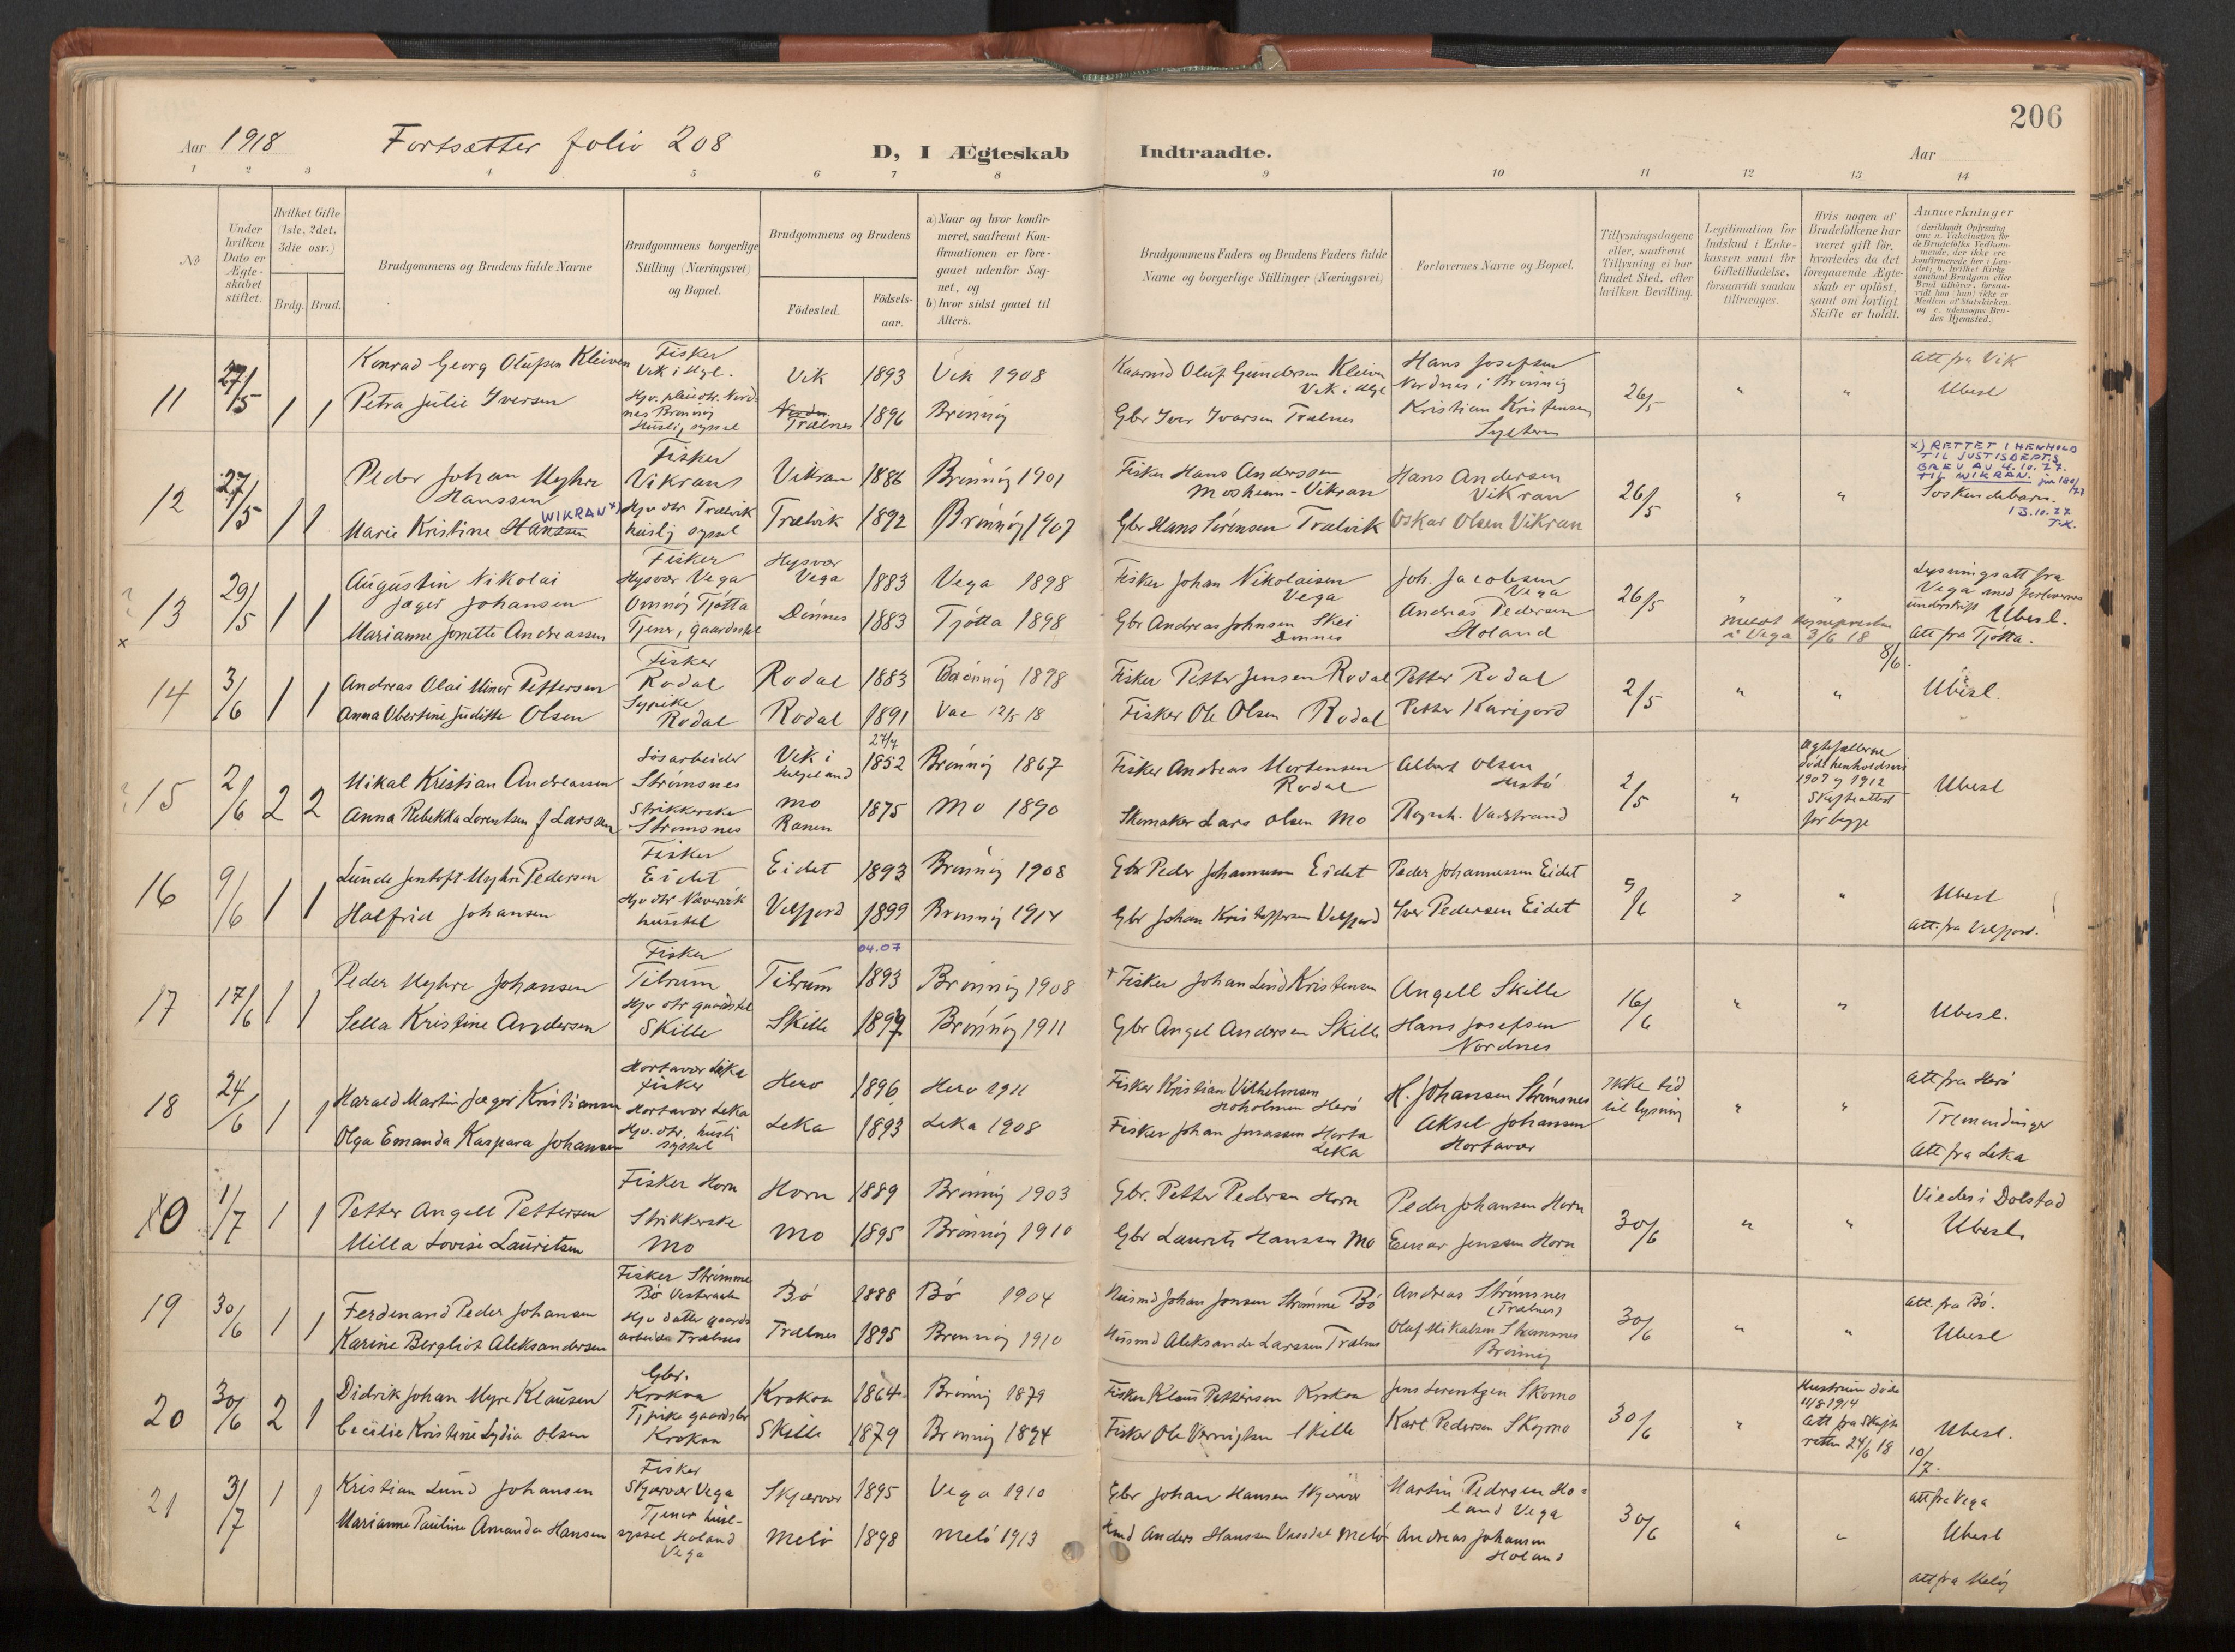 206
Aar 1918 Fortsætter folio 208 D, I Ægteskab Indtraadte. Aar
1 2 3 4 5 6 7 8 9 10 11 12 13 14
No
Under hvilken Dato er Ægte-skabet stiftet.
Hvilket Gifte (1ste, 2det. 3die osv.)
Brdg. Brud.
Brudgommens og Brudens fulde Navne
Brudgommens borgerlige Stilling (Næringsvei) og Bopæl.
Brudgommens og Brudens
Födested.
Födsels-aar.
a) Naar og hvor konfir-meret, saafremt Kon-firmationen er fore-gaaet udenfor Sog-net, og
b) hvor sidst gaaet til Alters.
Brudgommens Faders og Brudens Faders fulde Navne og borgerlige Stillinger (Næringsvei)
Forlovernes Navne og Bopæl.
Tillysningsdagene eller, saafremt Tillysning ei har fundet Sted, efter hvilken Bevilling.
Legitimation for Indskud i Enke-kassen samt for Giftetilladelse, forsaavidt saadan tiltrænges.
Hvis nogen af Brudefolkene har været gift för, hvorledes da det foregaaende Ægte-skab er oplöst, samt om lovligt Skifte er holdt.
Anmerkninger
11 27/5 1 1
Konrad Georg Olufsen Kleiven Fisker Vik i Hgl. Vik 1893 Vik 1908 Kaarmd Oluf Gundersen Kleiven Vik i Hlge Hans Josefsen Nordnes i Brønnøy 26/5 " " Att fra Vik
Petra Julie Iversen Hjv. pleiedtr. Nordnes Brønnøy Huslig syssel Trælnes 1896 Brønnøy Gbr Iver Ivarsen Trælnes Kristian Kristensen Ubesl
12 27/5 1 1
Peder Johan Myhre Hanssen Fisker Vikran Vikran 1886 Brønnøy 1901 Fisker Hans Anderssen Mosheim-Vikran Hans Andersen Vikran 26/5 " "
x) RETTET I HENHOLD TIL JUSTISDEPTS BREV AV 4.10.27. TIL WIKRAN.
Marie Kristine Hanssen WIKRAN x) Hjv dtr Trælvik huslig syssel Trælvik 1892 Brønnøy 1907 Gbr Hans Sørensen Trælvik Oskar Olsen Vikran Søskendebarn.
13.10.27
T.K.
13 29/5 1 1
Augustin Nikolai Jæger Johansen Fisker Hysvær Vega Hysvær Vega 1883 Vega 1898 Fisker Johan Nikolaisen Vega Joh. Jacobsen Vega 26/5 " " Lysningsatt fra Vega med forlovernes underskrift Ubesl.
x Marianne Jonette Andreassen Omnøy Tjøtta Tjener, gaardsstel Dønnes 1883 Tjøtta 1898 Gbr Andreas Johnsen Skei Dønnes Andreas Pedersen Holand meddt sognepresten i Vega 3/6 18 Att fra Tjøtta.
8/6.
14 3/6 1 1
Andreas Olai Minor Pettersen Fisker Rodal Rodal 1883 Brønnøy 1898 Fisker Petter Jensen Rodal Petter Rodal 2/5 " " Ubesl.
Anna Obertine Juditte Olsen Sypike Rodal Rodal 1891 Vac 12/5 18 Fisker Ole Olsen Rodal Petter Karijord
15 2/6 2 2
27/7
Mikal Kristian Andreassen Løsarbeider Strømsnes Vik i Helgeland 1852 Brønnøy 1867 Fisker Andreas Mortensen Rodal Albert Olsen 2/5 " Ægtefællerne døde henholdsvis 1907 og 1912 Skifteattest for begge Ubesl
Anna Rebekka Lorentsen f Larssen Strikkerske Strømsnes Mo Ranen 1875 Mo 1890 Skomaker Lars Olsen Mo
16 9/6 1 1
Lunde Jentoft Myhre Pedersen Fisker Eidet Eidet 1893 Brønnøy 1908 Gbr Peder Johannessen Eidet Peder Johannessen Eidet 9/6 " " Ubesl
Halfrid Johansen Hjv dtr husstel Velfjord 1899 Brønnøy 1914 Gbr Johan Kristoffersen Velfjord Iver Pedersen Eidet Att. fra Velfjord.
17 17/6 1 1
04.07
Peder Myhre Johansen Fisker Tilrum Tilrum 1893 Brønnøy 1908 + Fisker Johan Lind Kristensen Angell Skille 16/6 " " Ubesl.
Sella Kristine Andersen Hjv dtr gaardsstel Skille Skille 1897 Brønnøy 1911 Gbr Angel Andersen Skille Hans Josefsen Nordnes
18 24/6 1 1
Harald Martin Jæger Kristiansen Hortavær Leka Fisker Herø 1896 Herø 1911 Fisker Kristian Vilhelmsen Hoholmen Herø H. Johansen Strømsnes Ikke tid til lysning " " Att fra Herø
Tremendinger
Olga Emanda Kaspara Johansen Hortavær Leka Hjv. dtr. husli syssel Leka 1893 Leka 1908 Fisker Johan Jonassen Horta Leka Aksel Johansen Hortavær Att fra Leka
X0 1/7 1 1
Petter Angell Pettersen Fisker Horn Horn 1889 Brønnøy 1903 Gbr. Petter Pedersen Horn Peder Johansen Horn 30/6 " " Viedes i Dolstad
Milla Lovise Lauritsen Strikkerske Mo Mo 1895 Brønnøy 1910 Gbr Laurits Hanssen Mo Einar Jenssen Horn Ubesl.
19 30/6 1 1
Ferdinand Peder Johansen Fisker Strømme Bø Vesteraalen Bø 1888 Bø 1904 Husmd Johan Jonsen Strømme Bø Andreas Strømsnes (Trælnes) 30/6 " " Att. fra Bø.
Karine Bergliot Aleksandersen Hjv datter gaardsarbeide Trælnes Trælnes 1895 Brønnøy 1910 Husmd Aleksander Larssen Trælnes Oluf Mikalsen Strømsnes Brønnøy Ubesl
20 30/6 2 1
Didrik Johan Myre Klausen Gbr. Krokaa Krokaa 1864 Brønnøy 1879 Fisker Klaus Pettersen Krokaa Jens Lorentzen Skomo 30/6 " Hustruen døde 11/8 1914 Att fra Skifteretten 24/6 18 Ubesl.
Cecilie Kristine Lydia Olsen Tjpike gaardsbr Krokaa Skille 1879 Brønnøy 1894 Fisker Ole Skille Karl Pedersen Skomo
10/7.
21 3/7 1 1
Kristian Lund Johansen Fisker Skjærvær Vega Skjærvær 1895 Vega 1910 Gbr Johan Hansen Skjærvær Martin Pedersen Holand Vega 30/6 " " Att fra Vega
Marianne Pauline Amanda Hansen Tjener huslsyssel Holand Vega Melø 1898 Melø 1913 Anders Hanssen Vassdal Melø Andreas Johansen Holand Ubesl
Att fra Meløy